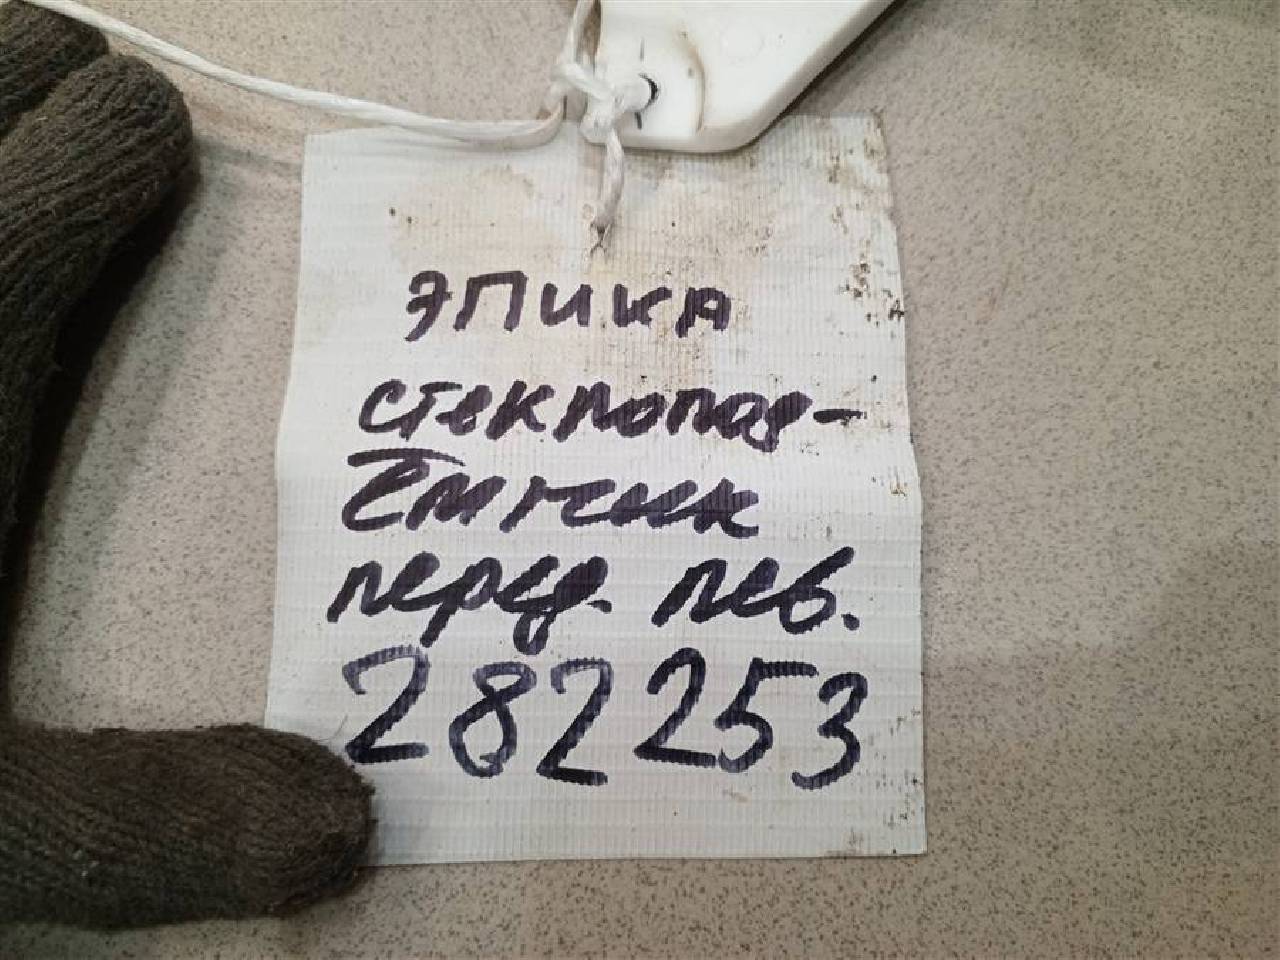 ЭПИКА
стеклопод-
ъёмник
перед. лев.
282253